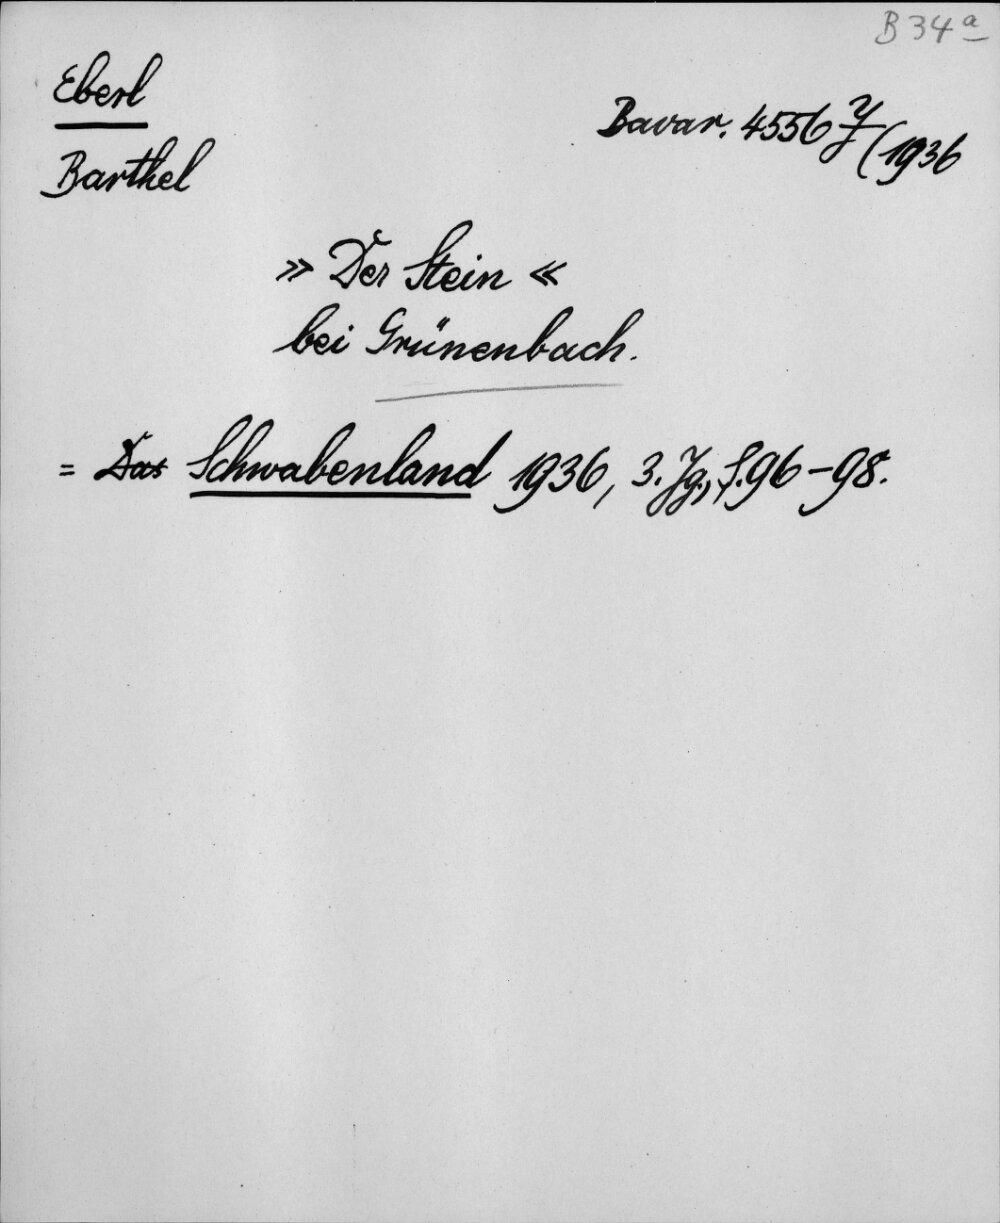 B 34 a
Eberl
Bavar. 4556 y/f (1936
Barthel
» Der Stein «
bei Grünenbach.
= Das Schwabenland 1936, 3. Jg., S. 96-98.